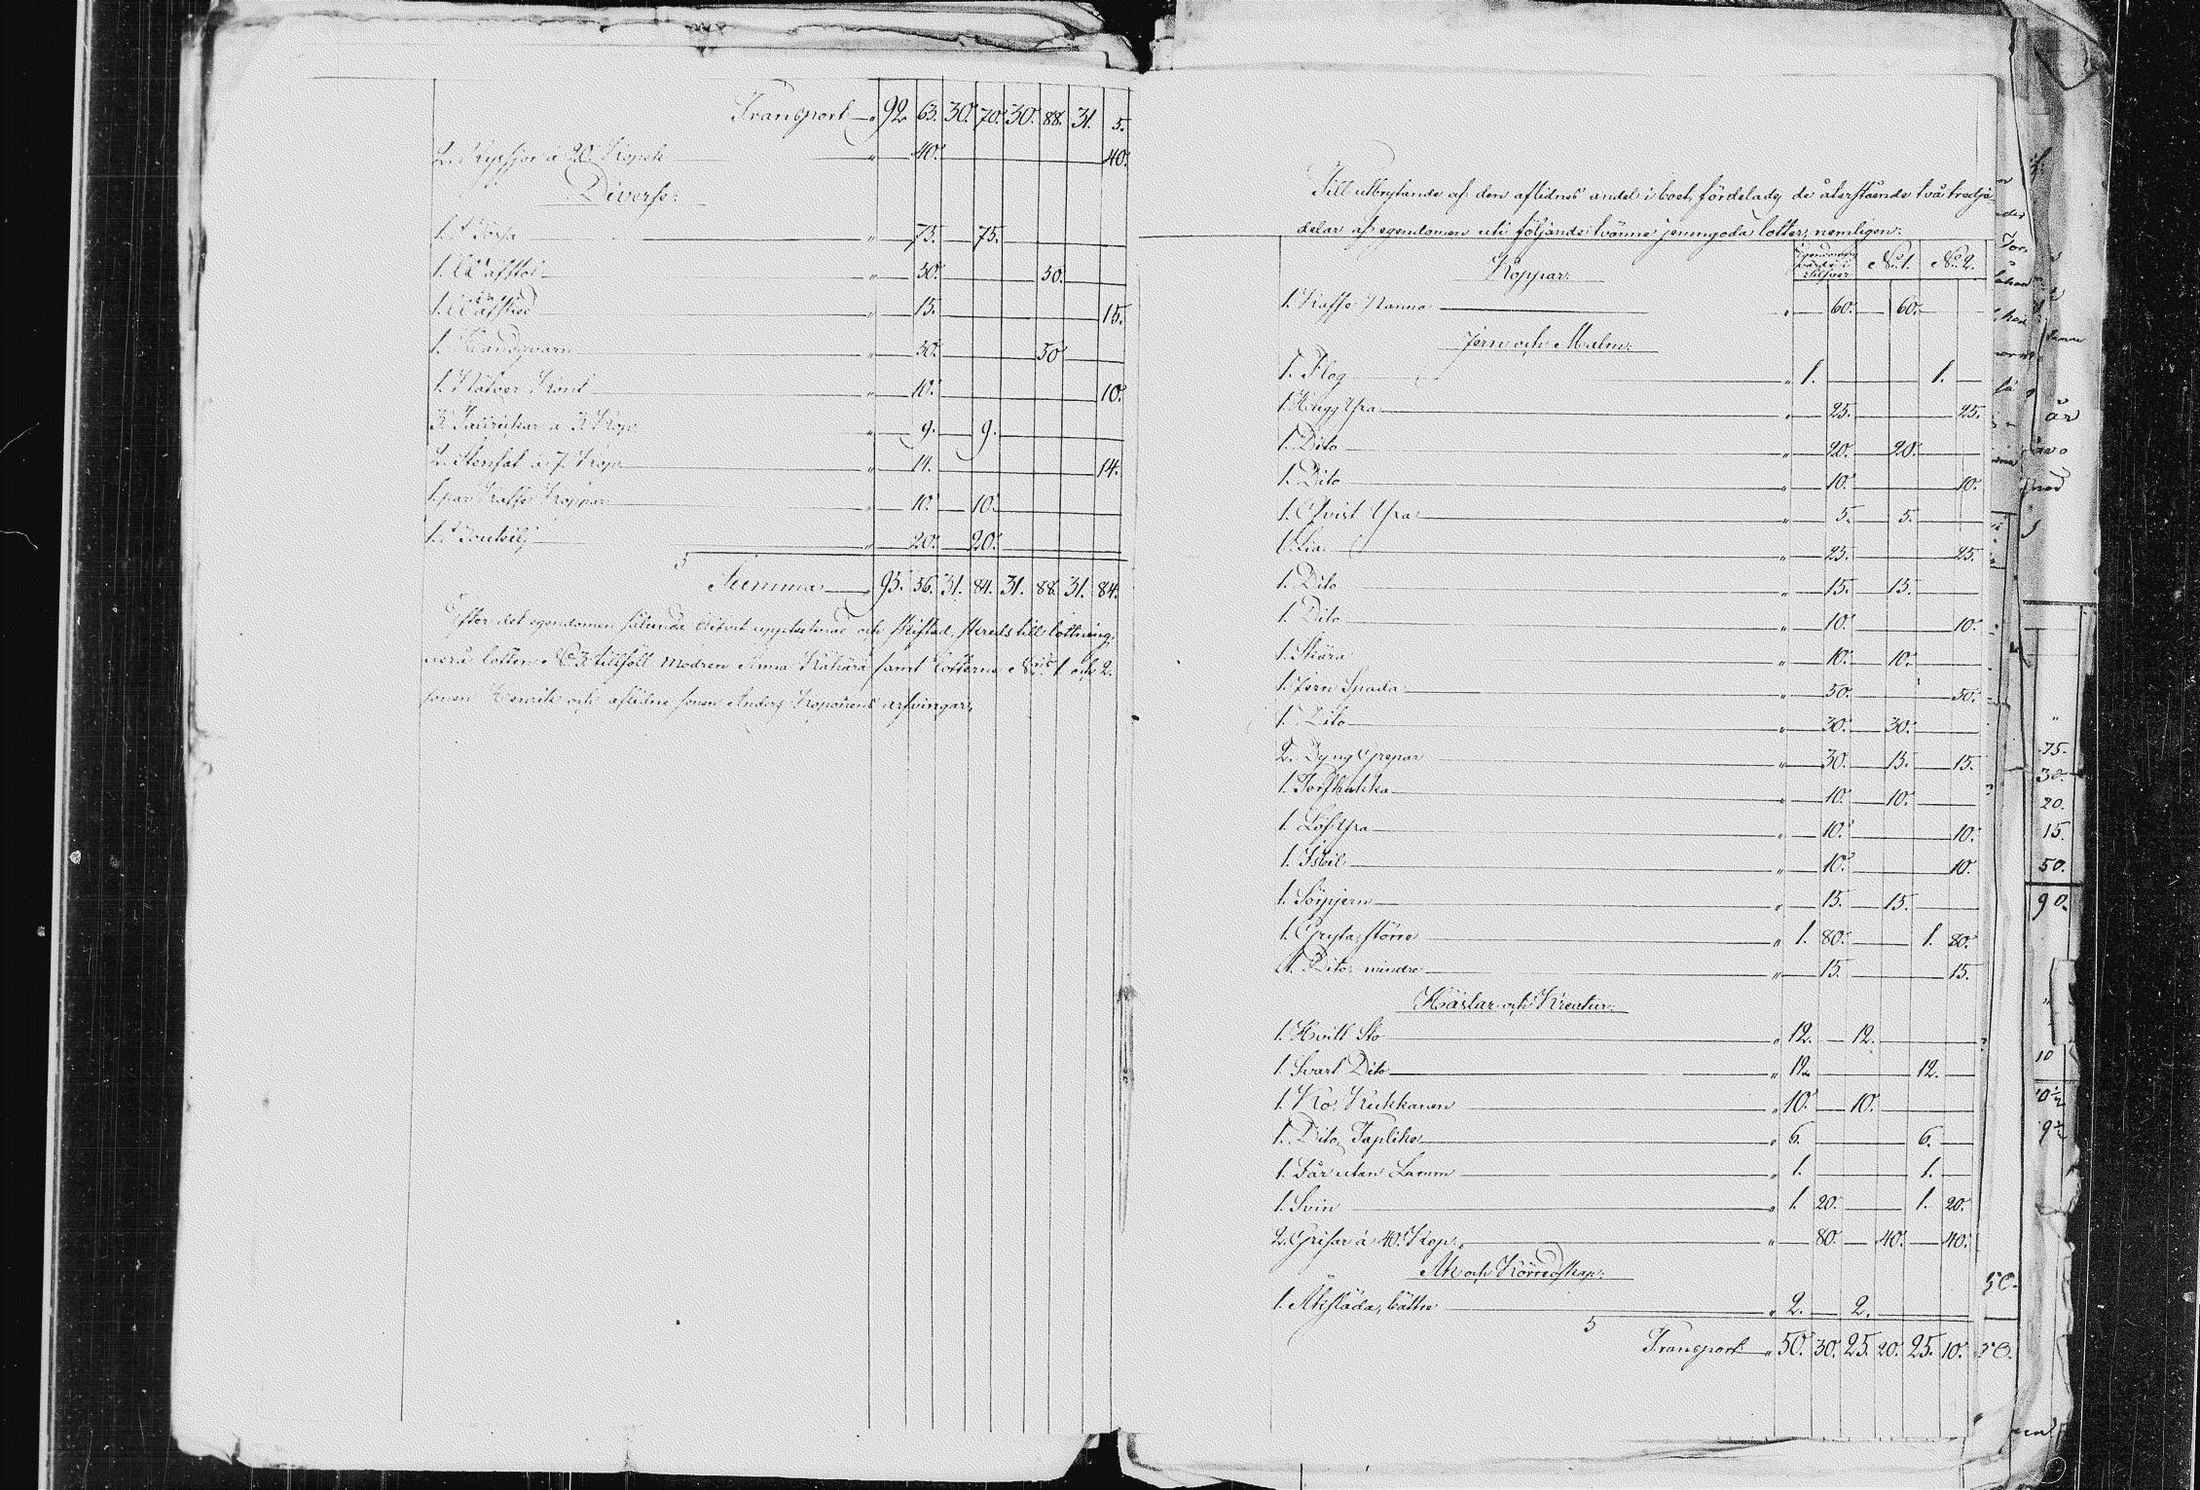 Transport " 92. 63. 30. 70. 30. 88. 31. 5.
2. Ryssjor à 20. Kopek " 40. 40.
Diverse:
1. Bössa " 75. 75.
1. Wäfstol " 50. 50.
1. Wäfsked " 15. 15.
1. Handqvarn " 50. 50
1. Nätver Kont " 10. 10.
3. à 3. Kop. " 9. 9.
2. Stenfat à 7. Kop. " 14. 14.
1. par Kaffe Koppar " 10. 10.
1. Bouteilj " 20. 20.
Summa " 95. 56. 31. 84. 31. 88. 31. 84.
Efter det egendomen sålunda blifvit upptecknad och skiftad, skreds till lottning,
lotten No 3 tillföll Modren Anna samt lotterne N:ris 1 och 2.
sonen Henrik och aflidne sonen Anders arfvingar.
Till utbrytande af den aflidnes andel i boet, fördelades de återstående två tredje
delar af egendomen uti följande tvänne jemngoda lotter, nemligen:
Koppar: Egendomens värde i Silfver No 1. No 2.
1. Kaffe Kanna " 60. 60.
Jern och Malm:
1. Plog " 1. 1.
1. Hugg Yxa " 25. 25.
1. Dito " 20. 20.
1. Dito " 10. 10.
1. Qvist Yxa " 5. 5.
1. Lia " 25. 25.
1. Dito " 15. 15.
1. Dito " 10. 10.
1. Skära " 10. 10.
1. Jern Spada " 50. 50.
1. Dito " 30. 30.
2. Dyng Grepar " 30. 15. 15.
1. Torfhacka " 10. 10.
1. Löf Yxa " 10. 10.
1. Isbil " 10. 10.
1. " 15. 15.
1. Gryta, större " 1. 80. 1. 80.
1. Dito, mindre " 15. 15.
Hästar och Kreatur:
1. Hvitt Sto " 12. 12.
1. Svart Dito " 12. 12.
1. Ko, Kukkanen " 10. 10.
1. Dito, Täplike " 6. 6.
1. Får utan Lamm " 1. 1.
1. Svin " 1. 20. 1. 20.
2. Grisar à 40. Kop. " 80. 40. 40.
Åk och Körredskap:
1. Åksläda, bättre " 2. 2.
Transport " 50. 30. 25. 20. 25. 10.
år
75.
30.
20.
15.
50.
90.
10
50.
50.